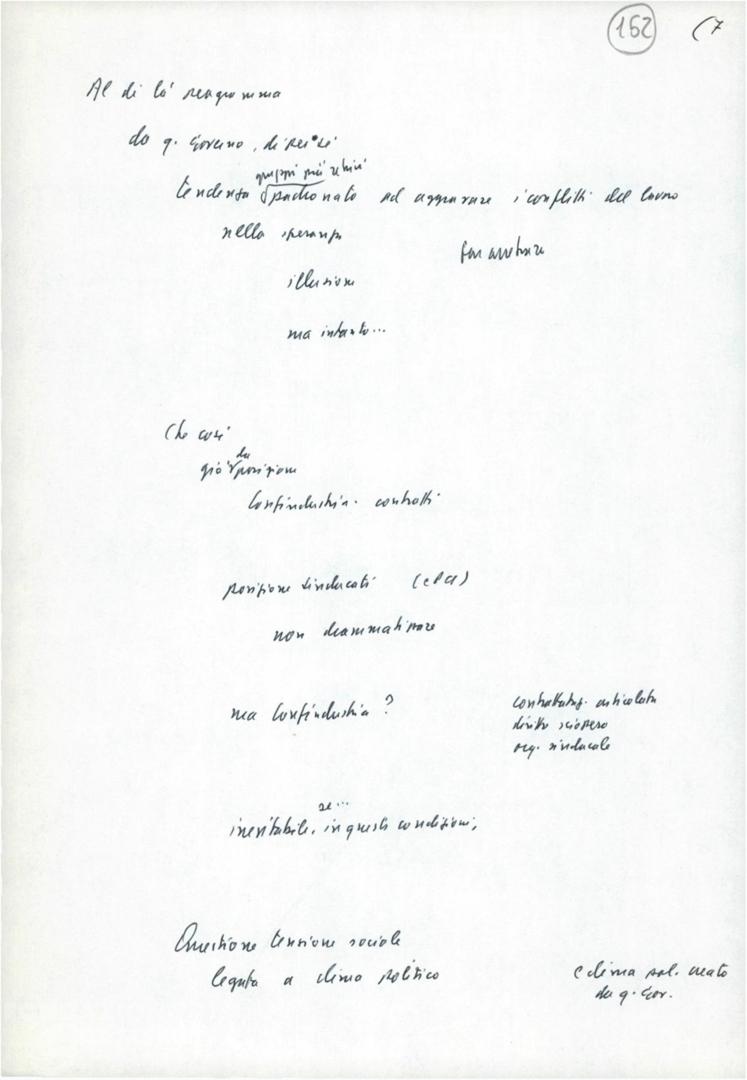 152 (7
Al di là programma
da q. Governo, di per sé
gruppi più retrivi
tendenza padronato ad aggravare i conflitti del lavoro
nella speranza
far arretrare
illusione
ma intanto...
Che cos'
da
già posizione
Confindustria - contratti
posizione sindacati
non drammatizzare
ma Confindustria ?
contrattaz. articolata
diritto sciopero
org. sindacale
se...
inevitabile, in queste condizioni,
Questione tensione sociale
legata a clima politico
e clima pol. creato
da q. Gov.